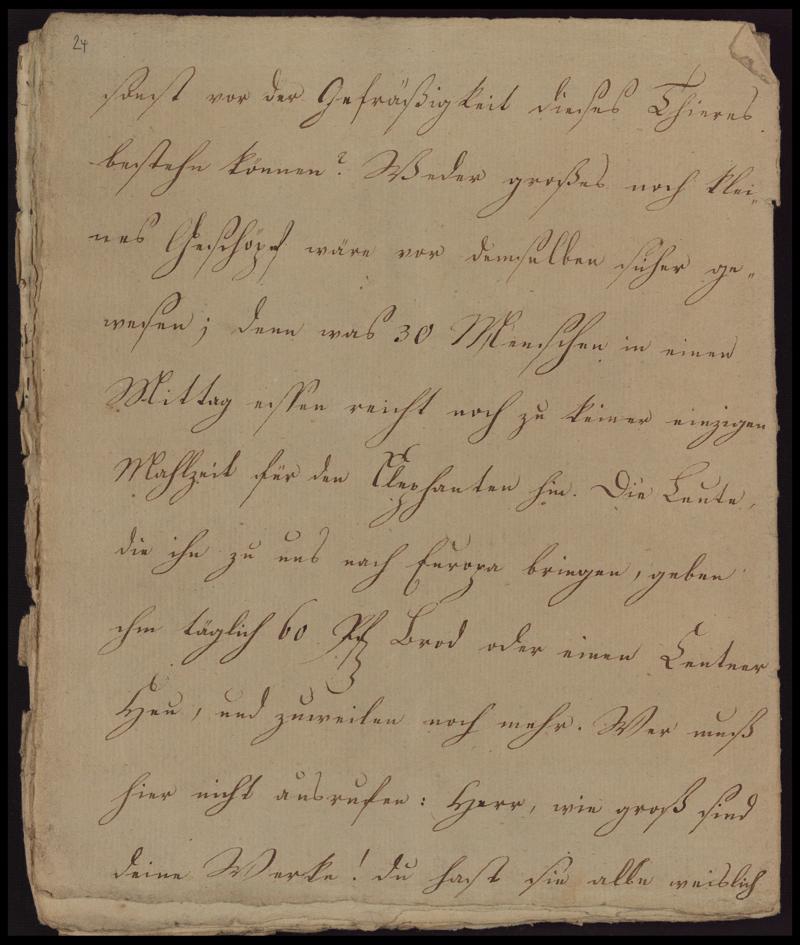 24
sonst vor der Gefräßigkeit dieses Thieres
bestehn können? Weder großes noch klei„
nes Geschöpf wäre vor demselben sicher ge„
wesen; denn was 30 Menschen in einen
Mittag essen reicht noch zu keiner einzigen
Mahlzeit für den Elephanten hin. Die Leute,
die ihn zu uns nach Europa bringen, geben
ihm täglich 60 Pf Brod oder einen Centner
Heu, und zuweilen noch mehr. Wer muß
hier nicht ausrufen: Herr, wie groß sind
deine Werke! du hast sie alle weislich